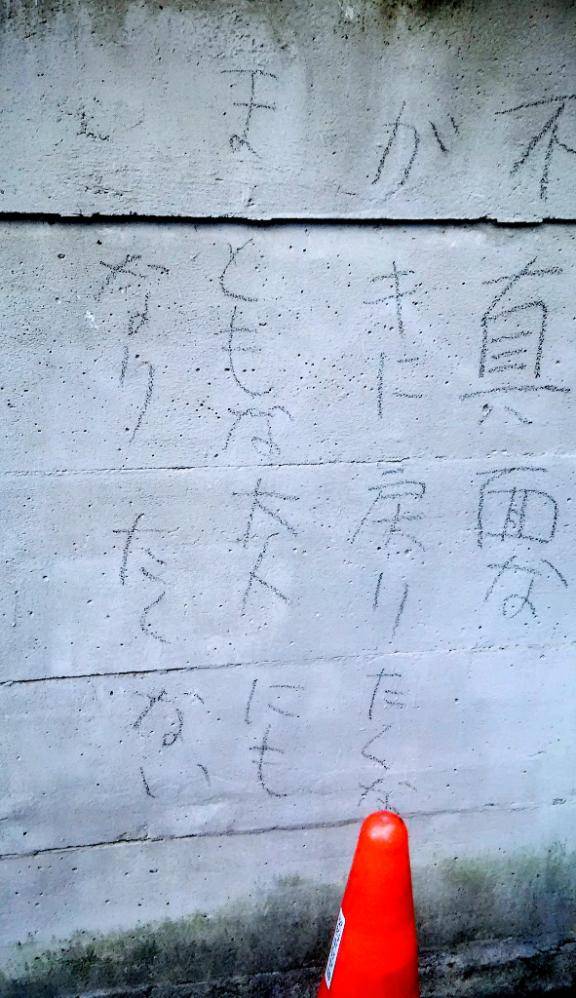 不真面な
がキに戻りたくな
まともな大人にも
なりたくない